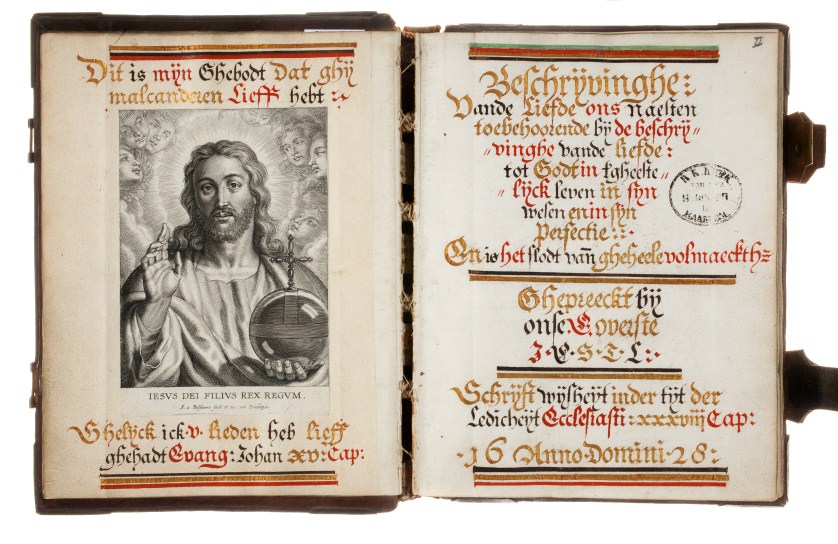 Dit is mijn Ghebodt Dat ghij
malcanderen Lieff hebt :~
IESVS DEI FILIVS REX REGVM.
Ghelyck ick · v · lieden heb lieff
ghehadt Evang: Johan xv: Cap:
VI
Beschrijvinghe:
Vande Liefde ons Naesten
toebehoorende bij de beschrij„
„vinghe vande liefde:
tot Godt in tgheeste„
„lijck leven in sijn
wesen en in sijn
Perfectie :~:
En is het slodt vañ gheheele volmaeckthz
Ghepreeckt bij
onse E. overste
J · E · S · T · L :·
Schrijft wijsheyt inder tijt der
Ledicheyt Ecclesiasti: xxxviij Cap:
· 16 Anno · Domini · 28 :
HAARLEM